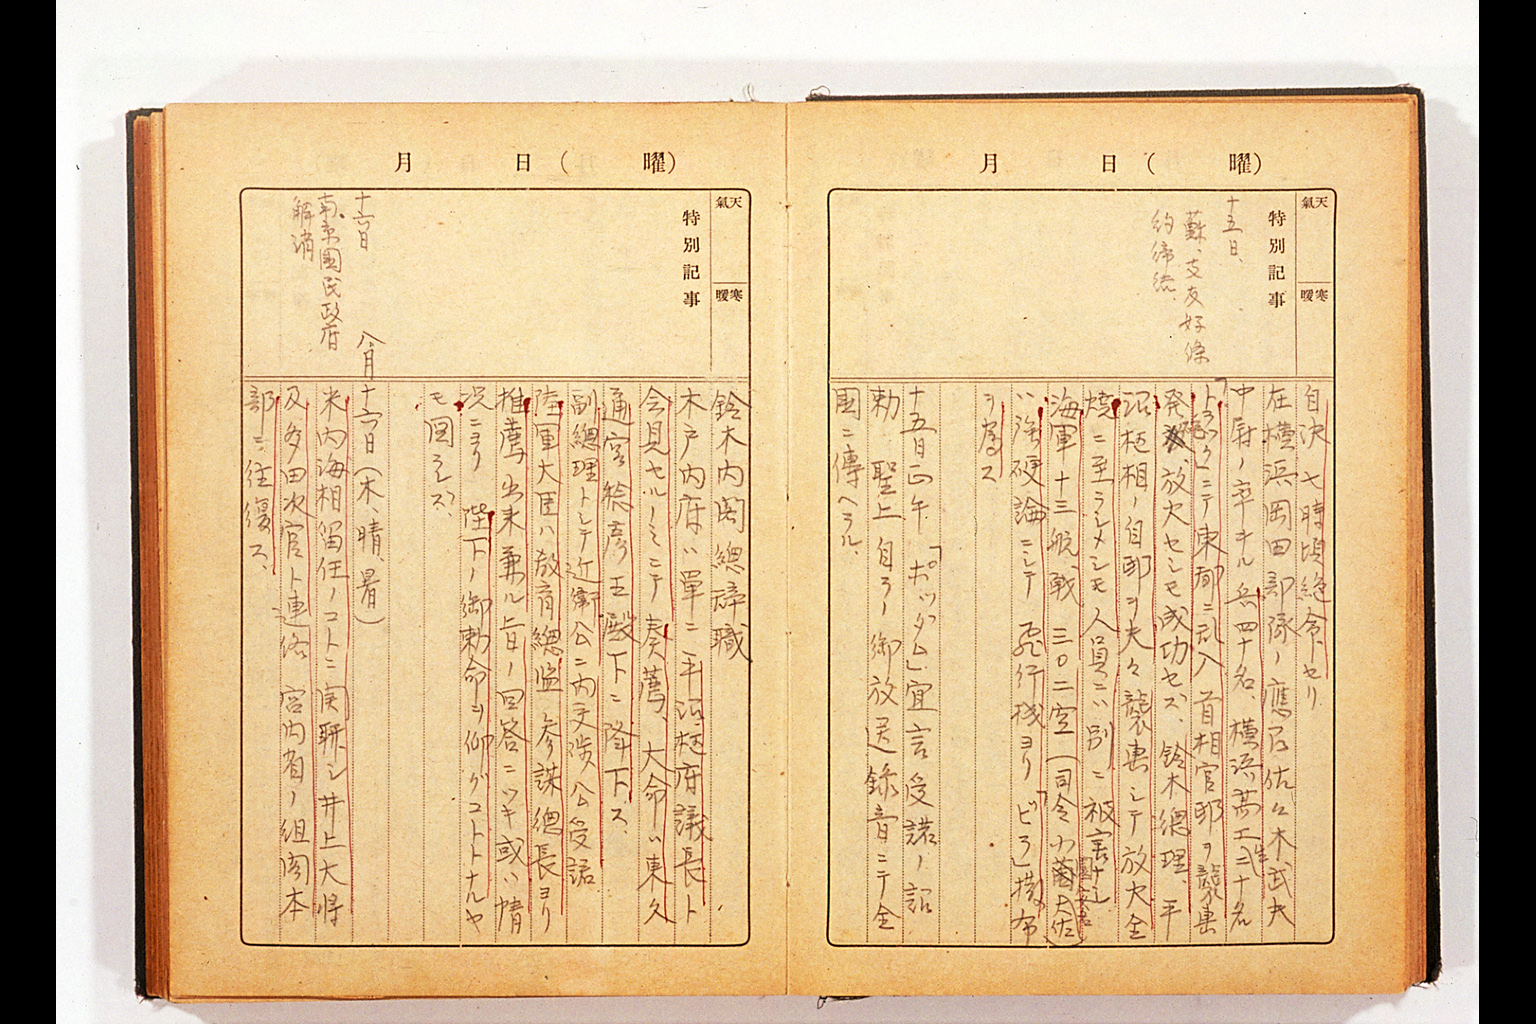 月 日(曜)
天氣
寒暖
特別記事
十五日、
蘇、支友好條
約締結
自決 七時頃絶命セリ
在横浜岡田部隊ノ應召佐々木武夫
中尉ノ率ヰル兵四十名、横浜高工生二十名
「トラック」ニテ東都ニ乱入 首相官邸ヲ襲撃
発砲放火セシモ成功セズ、鈴木總理、平
沼枢相ノ自邸ヲ夫々襲撃シテ放火全
焼ニ至ラシメシモ人員ニハ別ニ被害ナシ
海軍十三航戦 三〇二空(司令小薗大佐)
ハ強硬論ニシテ 飛行機ヨリ「ビラ」撒布
ヲ為ス
十五日正午「ポツダム」宣言受諾ノ詔
勅 聖上自ラノ御放送録音ニテ全
國ニ傳ヘラル、
月 日(曜)
天氣
寒暖
特別記事
十六日
南京國民政府
解消
鈴木内閣總辞職
木戸内府ハ單ニ平沼枢府議長ト
会見セルノミニテ 奏薦、大命ハ東久
邇宮稔彦王殿下ニ降下ス、
副總理トシテ近衛公ニ内交渉 公受諾
陸軍大臣ハ教育總監 参謀總長ヨリ
推薦出来兼ル旨ノ回答ニツキ或ハ情
況ニヨリ 陛下ノ御勅命ヲ仰グコトトナルヤ
モ図ラレズ、
八月十六日(木、晴、暑)
米内海相留任ノコトニ関聯シ井上大将
及多田次官ト連絡 宮内省ノ組閣本
部ニ往復ス、